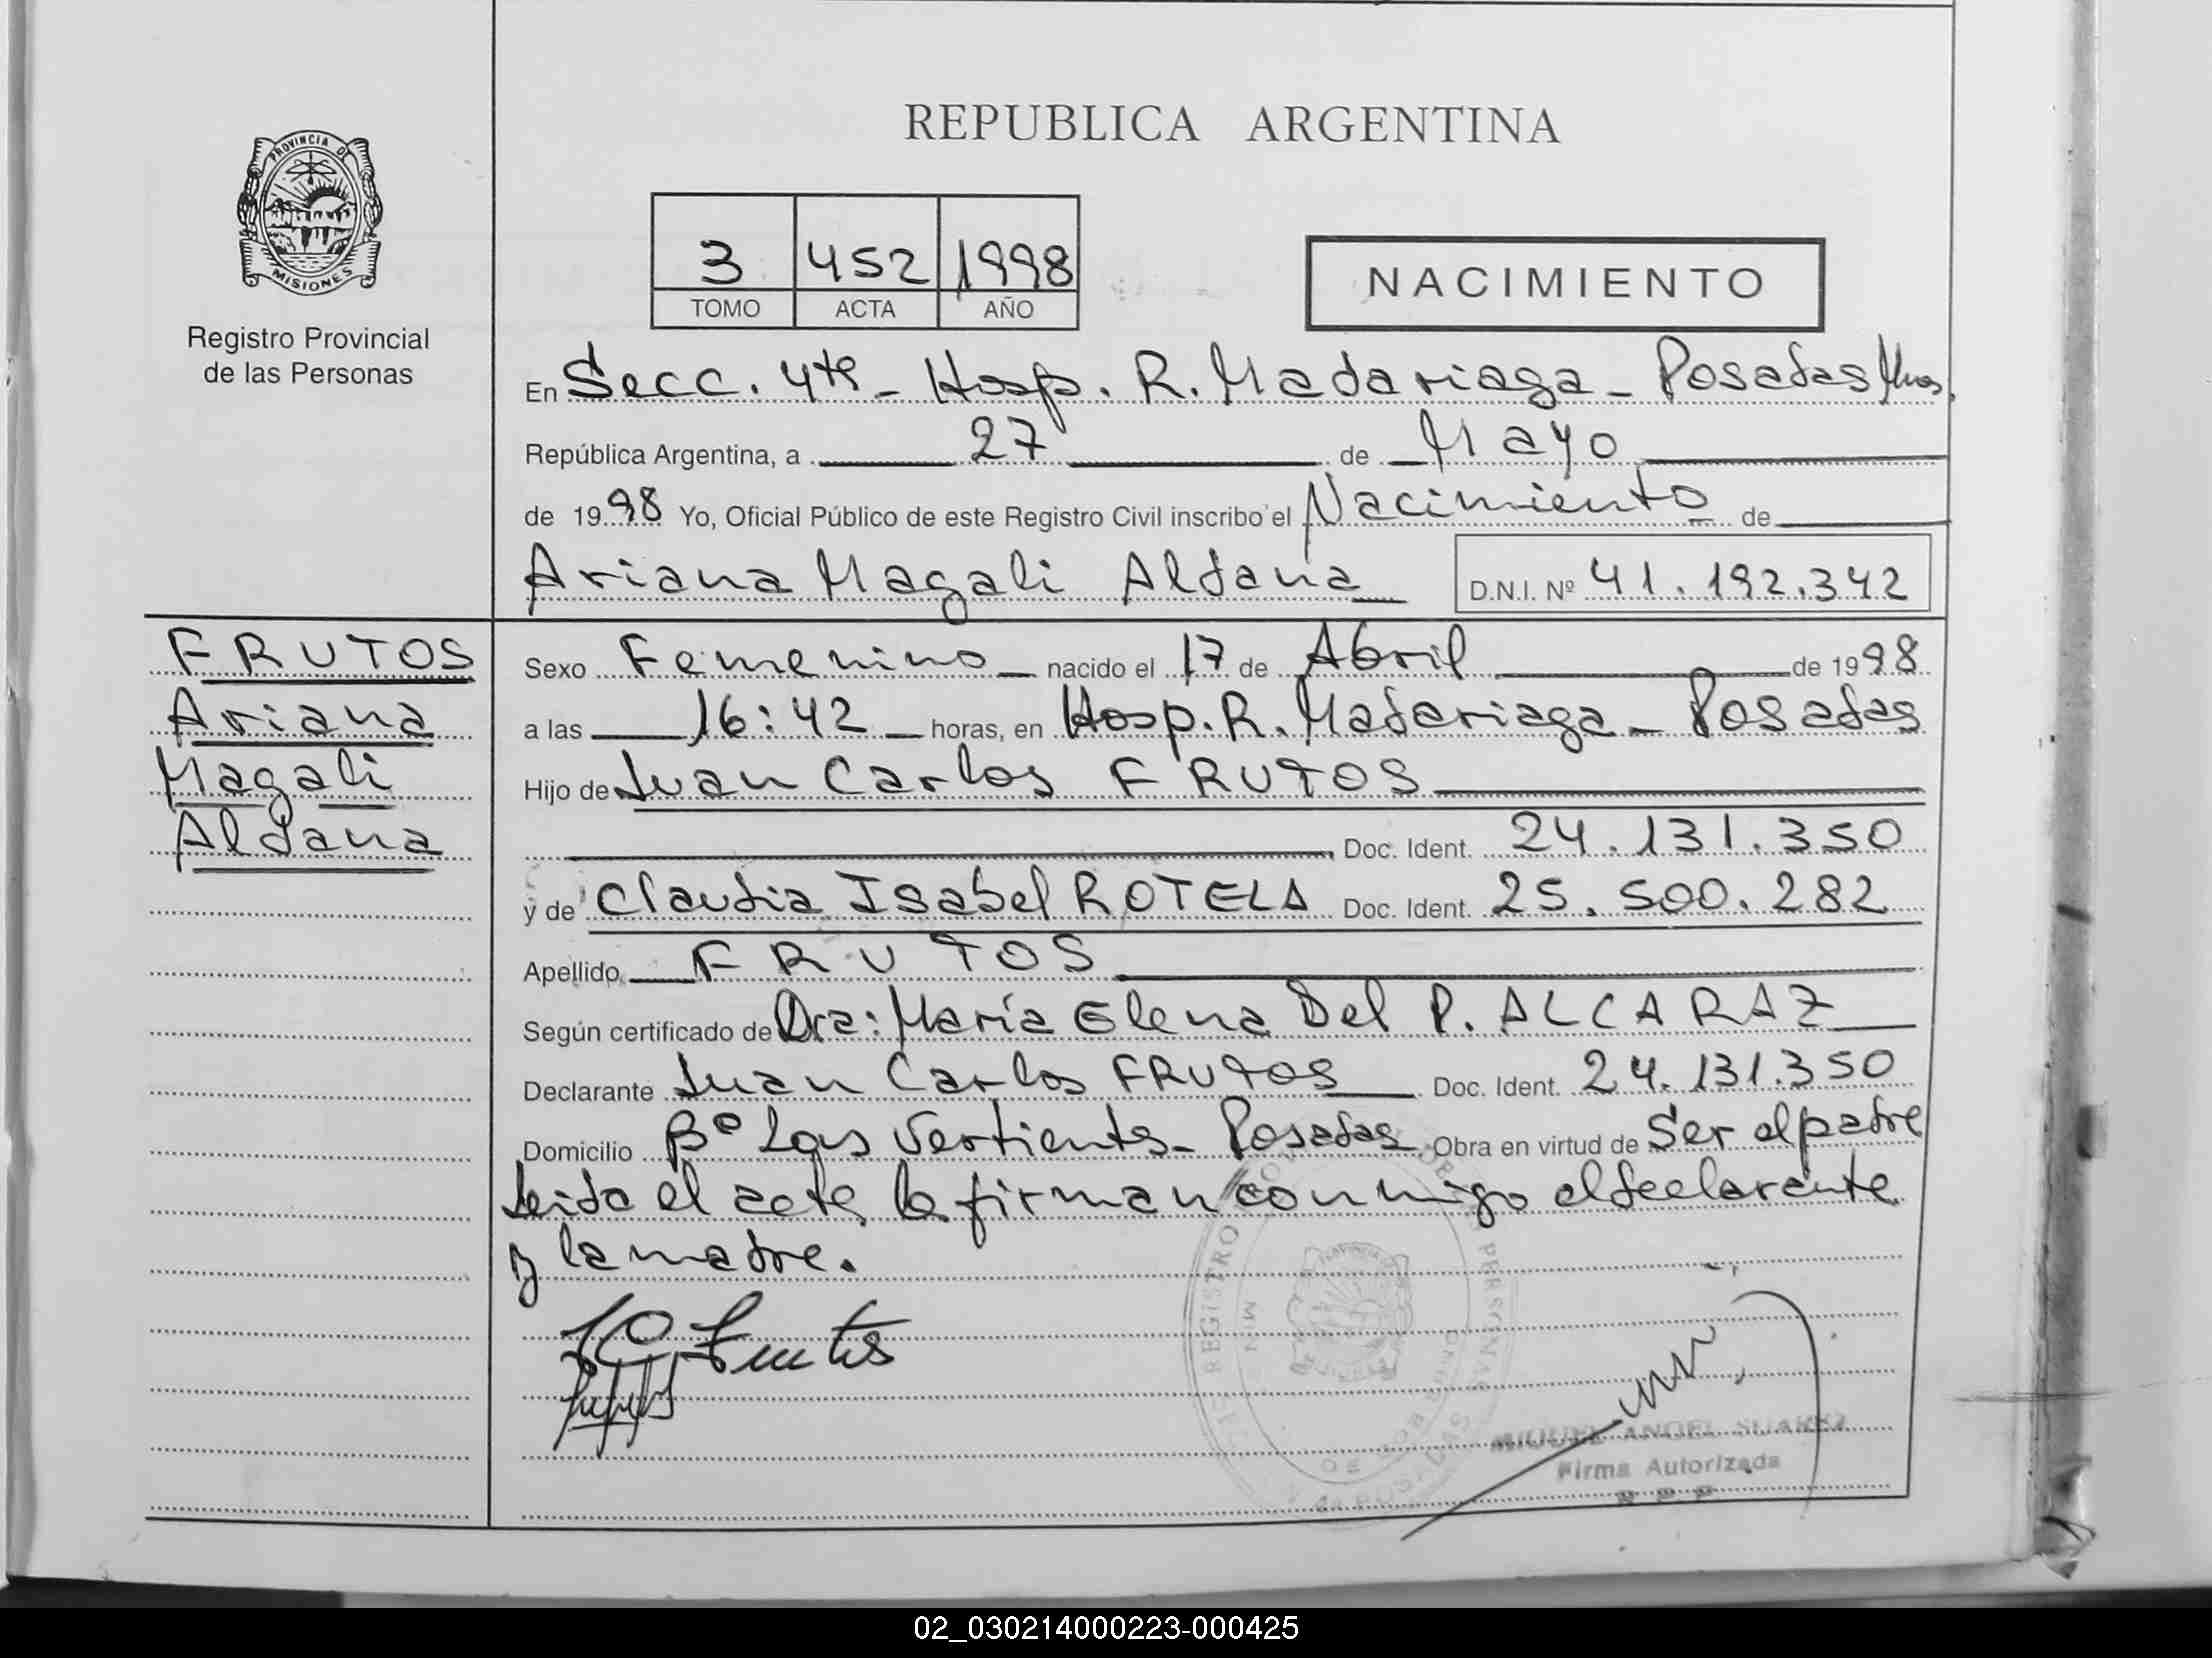 REPUBLICA ARGENTINA
PROVINCIA DE
MISIONES
Registro Provincial
de las Personas
3 452 1998
TOMO ACTA AÑO
NACIMIENTO
En Secc. 4ta - Hosp. R. Madariaga - Posadas Mnes,
República Argentina, a 27 de Mayo
de 1998 Yo, Oficial Público de este Registro Civil inscribo el Nacimiento de
Ariana Magali Aldana D.N.I. Nº 41.192.342
FRUTOS
Ariana
Magali
Aldana
Sexo Femenino nacido el 17 de Abril de 1998
a las 16:42 horas, en Hosp. R. Madariaga - Posadas
Hijo de Juan Carlos FRUTOS
Doc. Ident. 24.131.350
y de Claudia Isabel ROTELA Doc. Ident. 25.500.282
Apellido FRUTOS
Según certificado de Dra: María Elena Del P. ALCARAZ
Declarante Juan Carlos FRUTOS Doc. Ident. 24.131.350
Domicilio Bº Las Vertientes - Posadas Obra en virtud de Ser el padre
Leida el acta, la firman conmigo el declarante
y la madre.
JC Frutos
REGISTRO DE LAS PERSONAS
POSADAS
MIGUEL ANGEL SUAREZ
Firma Autorizada
R. P. P.
02_030214000223-000425